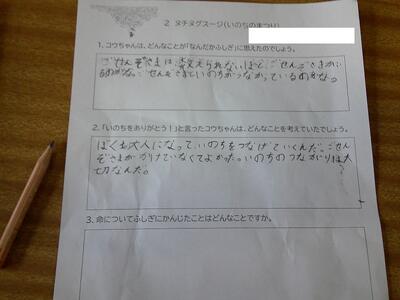 2 ヌチヌグスージ(いのちのまつり)
1. コウちゃんは、どんなことが「なんだかふしぎ」に思えたのでしょう。
ごせんぞさまは、数えられないほど、ごせんぞさまがい
るのかな。ごせんぞさまといのちがつながっているのかな。
2. 「いのちをありがとう!」と言ったコウちゃんは、どんなことを考えていたでしょう。
ぼくも大人になって、いのちをつなげていくんだ。ごせん
ぞさまがかけていなくてよかった。いのちのつながりは大
切なんだ。
3. 命についてふしぎにかんじたことはどんなことですか。